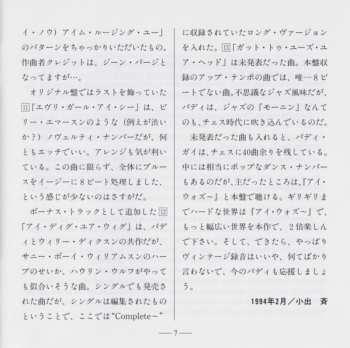 イ・ノウ）アイム・ルージング・ユー」
のパターンをちゃっかりいただいたもの。
作曲者クレジットは、ジーン・バージと
なってますが…。
オリジナル盤ではラストを飾っていた
⑪「エヴリ・ガール・アイ・シー」は、ビ
リー・エマースンのような（例えが渋い
か？）ノヴェルティ・ナンバーだが、何
ともエッチでいい。アレンジも気が利い
ている。この曲に限らず、全体にブルー
スをイージーに８ビート処理しました、
という感じが少ないのはさすがだ。
ボーナス・トラックとして追加した⑫
「アイ・ディグ・ユア・ウィグ」は、バデ
ィとウィリー・ディクスンの共作だが、
サニー・ボーイ・ウィリアムスンのハー
プのせいか、ハウリン・ウルフがやって
も似合いそうな曲。シングルでも発売さ
れた曲だが、シングルは編集されたもの
ということで、ここでは“Complete～”
に収録されていたロング・ヴァージョン
を入れた。⑬「ガット・トゥ・ユーズ・ユ
ア・ヘッド」は未発表だった曲。本盤収
録のアップ・テンポの曲では、唯一８ビ
ートでない曲。不思議なジャズ風味だが、
バディは、ジャズの『モーニン』なんて
のも、チェス時代に吹き込んでいるのだ。
未発表だった曲も入れると、バディ・
ガイは、チェスに40曲余りを残している。
中には相当にポップなダンス・ナンバー
もあるのだが、主だったところは、『アイ・
ウォズ～』と本盤で聴ける。ギリギリま
でハードな世界は『アイ・ウォズ～』で、
もっと幅広い世界を本作で、２倍楽しん
で下さい。そして、できたら、やっぱり
ヴィンテージ録音はいいや、何てばかり
言わないで、今のバディも応援しましょ
う。
1994年２月／小出　斉
― 7 ―